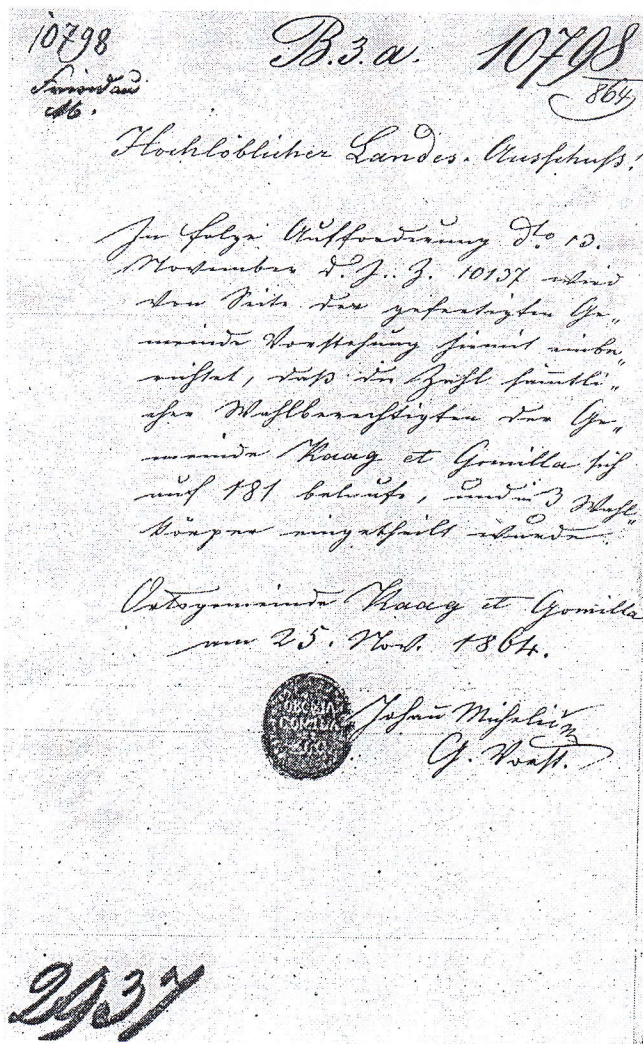 10798
Friedau
M.
B.3.a. 10798
864
Hochlöblicher Landes-Ausschuß!
In folge Aufforderung dto 13.
November d. J. Z. 10137 wird
von Seite der gefertigten Ge„
meinde Vorstehung hiemit einbe„
richtet, daß die Zahl sämmtli„
cher Wahlberechtigten der Ge„
meinde Kaag et Gomilla sich
auf 181 belaufe, und in 3 Wahl
körper eingetheilt wurde.
Ortsgemeinde Kaag et Gomilla
am 25. Nov. 1864.
OBCHIA
GOMILA
Johan Michelič
G. Vorst.
2937